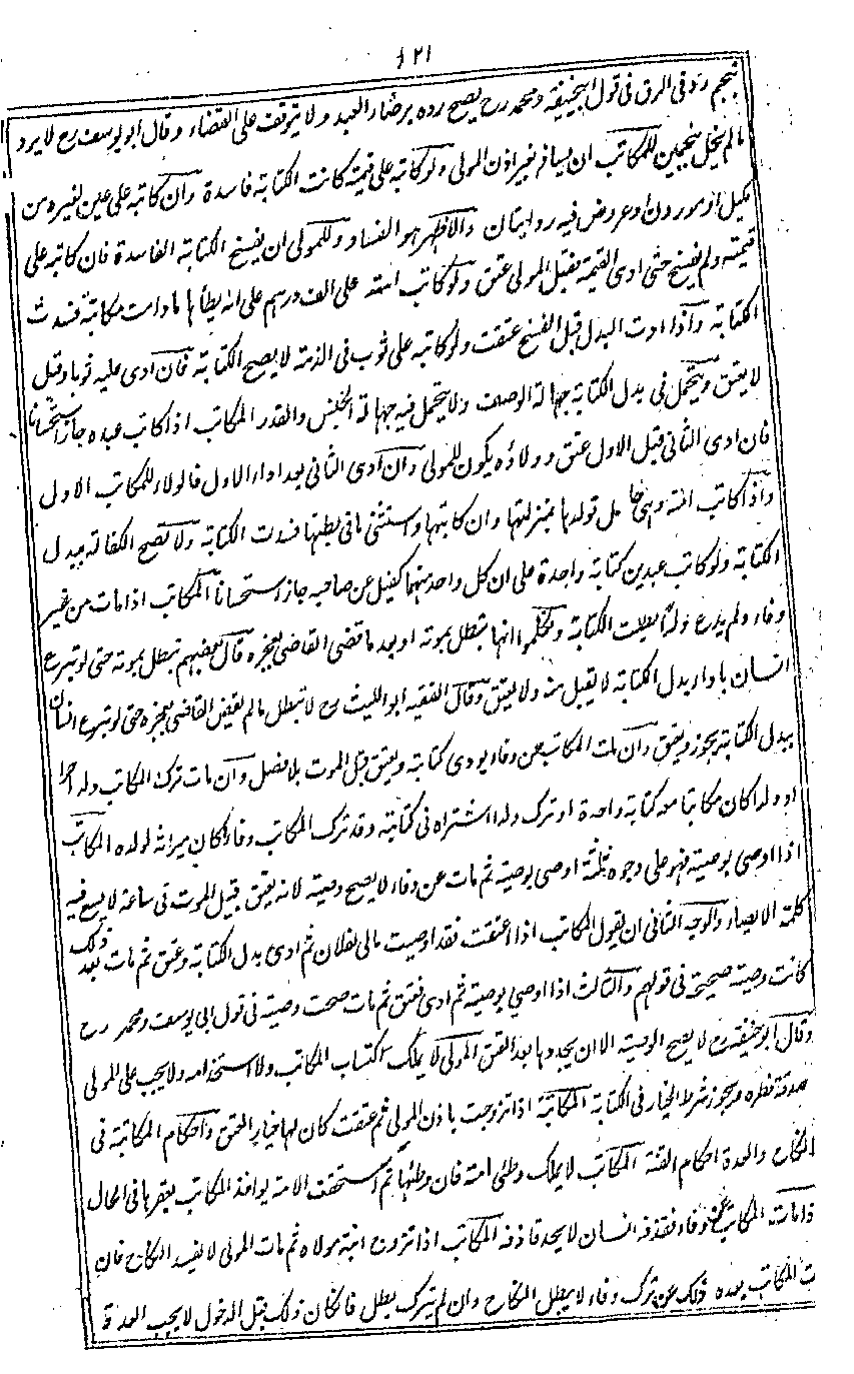 ١٢١
بنجم رد في الرق في قول ابيحنيفة ومحمد رح يصح رده برضاء العبد ولا يتوقف على القضاء وقال ابو يوسف رح لا يرد
ما لم يخل بنجمين للمكاتب ان يسافر بغير اذن المولى ولو كاتبه على قيمته كانت الكتابة فاسدة وان كاتبه على عين لغيره من
مكيل او موزون او عروض فيه روايتان والاظهر هو الفساد وللمولى ان يفسخ الكتابة الفاسدة فان كاتبه على
قيمته ولم يفسخ حتى ادى القيمة يقبل المولى عتق ولو كاتب امته على الف درهم على انه يطأها ما دامت مكاتبة فسدت
الكتابة واذا ادت البدل قبل الفسخ عتقت ولو كاتبه على ثوب في الذمة لا يصح الكتابة فان ادى عليه ثوبا وقبل
لا يعتق ويتحمل في بدل الكتابة جهالة الوصف ولا يتحمل فيه جهالة الجنس والقدر المكاتب اذا كاتب عبده جاز استحسانا
فان ادى الثاني قبل الاول عتق وولاؤه يكون للمولى وان ادى الثاني بعد اداء الاول فالولاء للمكاتب الاول
واذا كاتب امته وهي حامل تولدها بمنزلتها وان كاتبها واستثنى ما في بطنها فسدت الكتابة ولا تصح الكفالة ببدل
الكتابة ولو كاتب عبدين كتابة واحدة على ان كل واحد منهما كفيل عن صاحبه جاز استحسانا المكاتب اذا مات من غير
وفاء ولم يدع ولدا بطلت الكتابة وتكلموا انها تبطل بموته او بعد ما قضى القاضي بعجزه قال بعضهم تبطل بموته حتى لو تبرع
انسان باداء بدل الكتابة لا يقبل منه ولا يعتق وقال الفقيه ابو الليث رح لا تبطل ما لم يقض القاضي بعجزه حتى لو تبرع انسان
ببدل الكتابة يجوز ويعتق وان مات المكاتب عن وفاء يودى كتابة ويعتق قبل الموت بلا فصل وان مات ترك المكاتب ولد احرا
او ولدا كان مكاتبا معه كتابة واحدة او ترك ولدا اشتراه في كتابته وقد ترك المكاتب وفاء كان ميراثه لولده المكاتب
اذا اوصى بوصية فهو على وجوه ثلثة اوصى بوصية ثم مات عن وفاء لا يصح وصيته لانه يعتق قبيل الموت في ساعة لا يسع فيه
كلمة الايصاء والوجه الثاني ان يقول المكاتب اذا اعتقت فقد اوصيت مالي لفلان ثم ادى بدل الكتابة وعتق ثم مات بعد ذلك
كانت وصيته صحيحة في قولهم والثالث اذا اوصى بوصية ثم ادى فعتق ثم مات صحت وصيته في قول ابي يوسف ومحمد رح
وقال ابو حنيفة رح لا يصح الوصية الا ان يجددها بعد العتق المولى لا يملك اكتساب المكاتب ولا استخدامه ولا يجب على المولى
صدقة فطره ويجوز شرط الخيار في الكتابة المكاتبة اذا تزوجت باذن المولى ثم عتقت كان لها خيار العتق واحكام المكاتبة في
النكاح والعدة احكام القنة المكاتب لا يملك وطئ امته فان وطئها ثم استحقت الامة يواخذ المكاتب بعقرها في الحال
ذا مات المكاتب عن وفاء فقذفه انسان لا يحد قاذفه المكاتب اذا تزوج ابنة مولاه ثم مات المولى لا يفسد النكاح فان
ت المكاتب بعده ذلك عن ترك وفاء لا يبطل النكاح وان لم يترك يبطل فان كان ذلك قبل الدخول لا يجب العدة